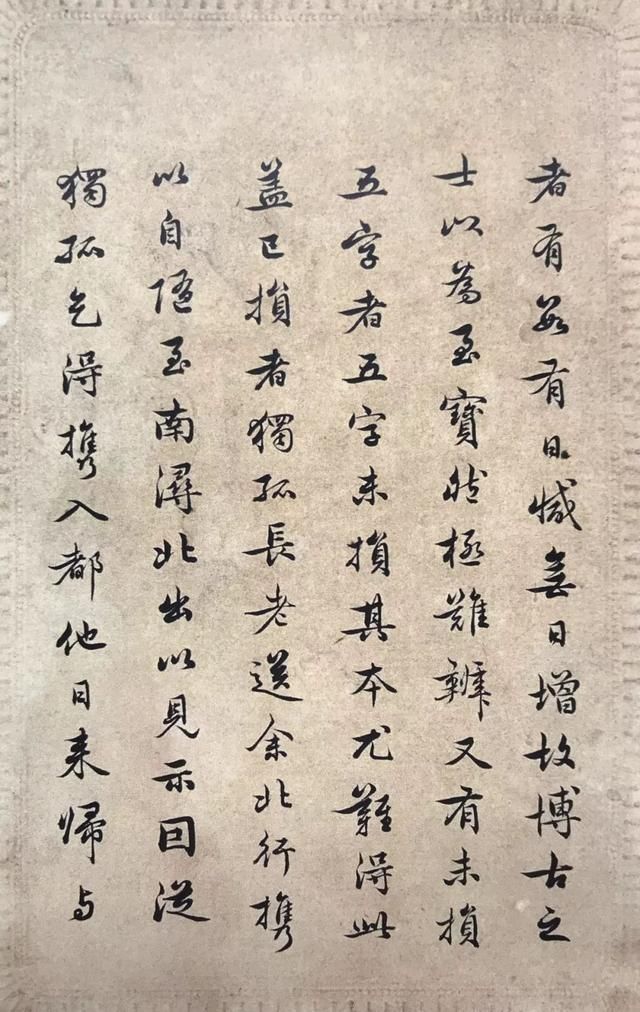 者有數有日減無日增故博古之
士以為至寶然極難辨又有未損
五字者五字未損其本尤難得此
盖已損者獨孤長老送余北行携
以自随至南潯北出以見示因從
獨孤乞得携入都他日来歸与